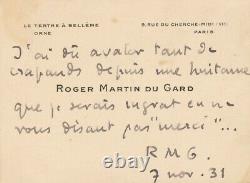 LE TERTRE À BELLÊME
ORNE
9, RUE DU CHERCHE-MIDI (VIe)
PARIS
J'ai dû avaler tant de
crapauds depuis une huitaine
ROGER MARTIN DU GARD
que je serais ingrat en ne
vous disant pas "merci"...
R M G.
7 nov. 31